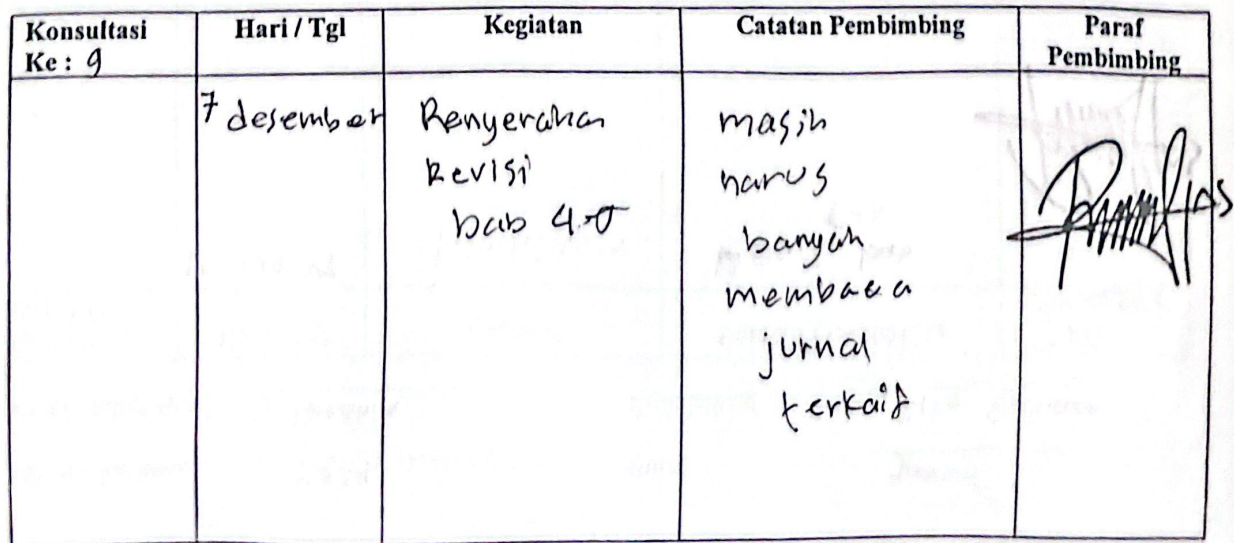 Konsultasi Ke : 9
Hari / Tgl
Kegiatan
Catatan Pembimbing
Paraf Pembimbing
7 desember
Penyerahan
Revisi
bab 4-5
masih
harus
banyak
membaca
jurnal
terkait